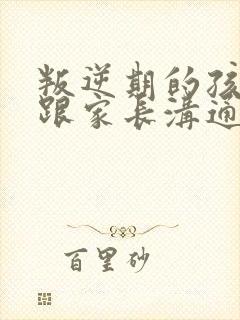 叛逆期的孩
跟家長溝通
百里砂